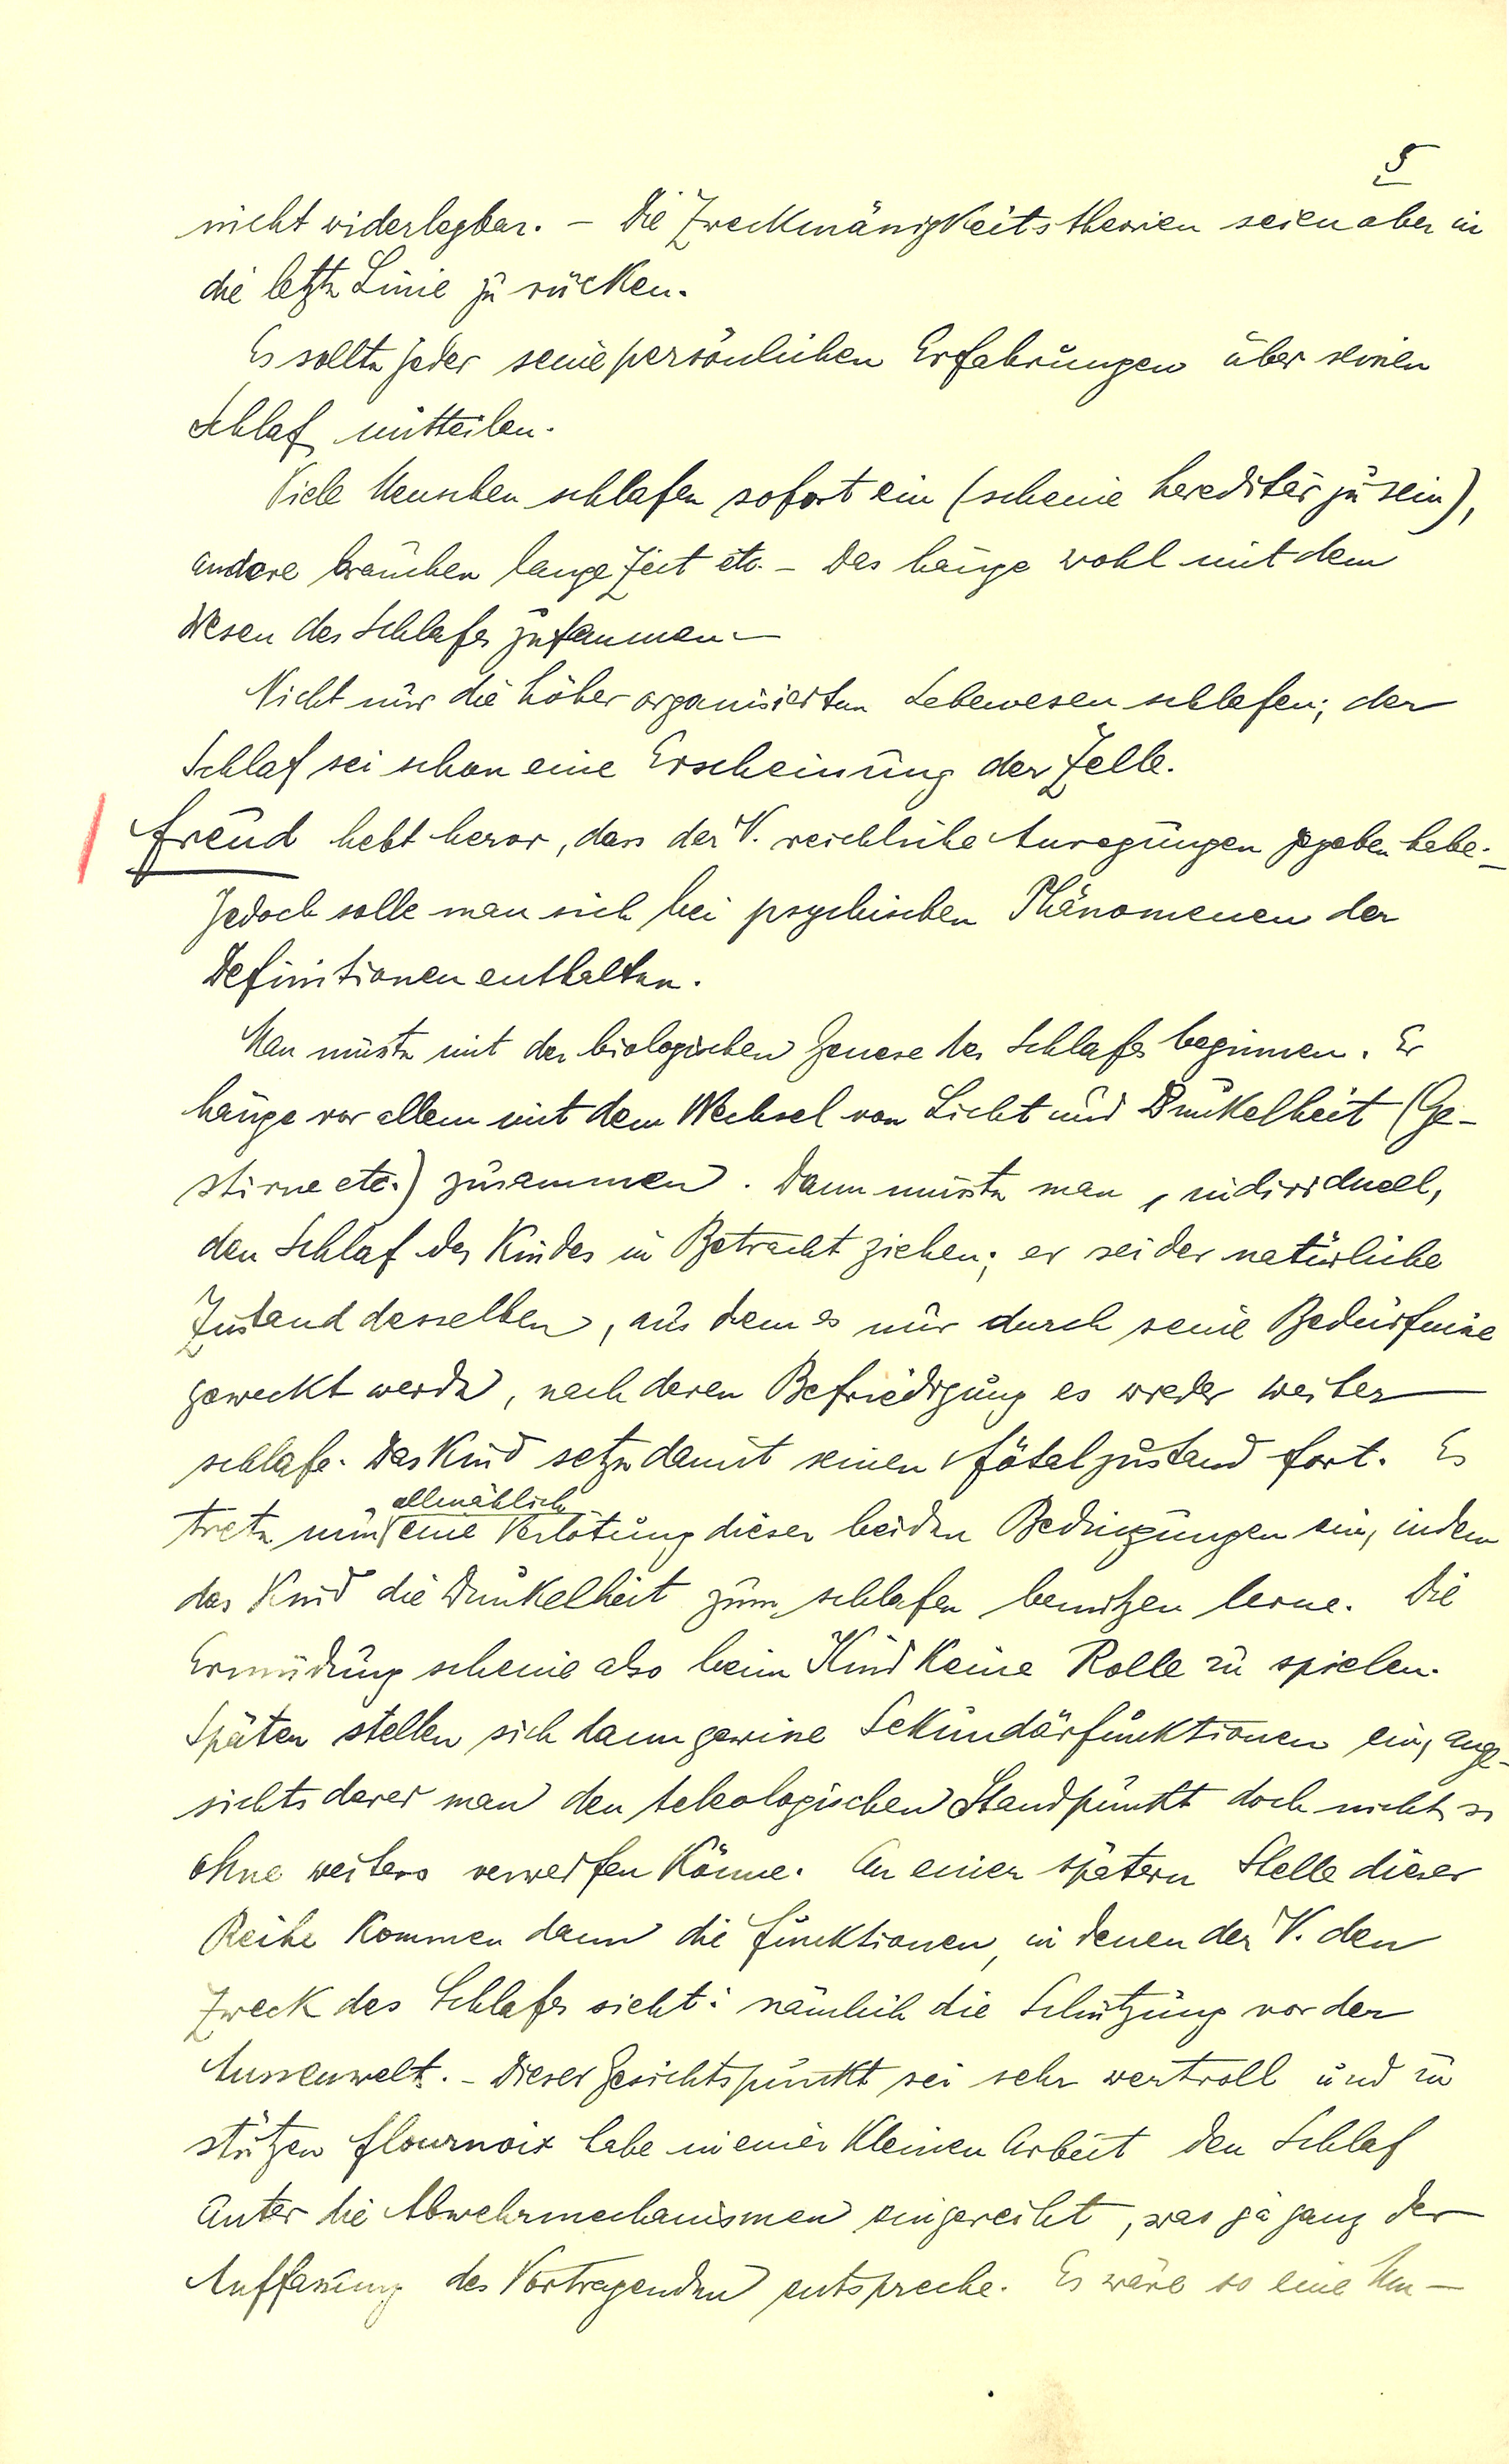 5
nicht widerlegbar. – Die Zweckmässigkeitstheorien seien aber in
die letzte Linie zu rücken.
Es sollte jeder seine persönlichen Erfahrungen über seinen
Schlaf mitteilen.
Viele Menschen schlafen sofort ein (scheine hereditär zu sein),
andere brauchen lange Zeit etc. – Das hänge wohl mit dem
Wesen des Schlafes zusammen. –
Nicht nur die höher organisierten Lebewesen schlafen; der
Schlaf sei schon eine Erscheinung der Zelle.
Freud hebt hervor, dass der V. reichliche Anregungen gegeben habe. –
Jedoch solle man sich bei psychischen Phänomenen der
Definitionen enthalten.
Man müsste mit der biologischen Genese des Schlafes beginnen. Er
hänge vor allem mit dem Wechsel von Licht und Dunkelheit (Ge-
stirne etc.) zusammen. Dann müsste man, individuell,
den Schlaf des Kindes in Betracht ziehen; er sei der natürliche
Zustand desselben, aus dem es nur durch seine Bedürfnisse
geweckt werde, nach deren Befriedigung es wieder weiter
schlafe. Das Kind setze damit seinen Fötalzustand fort. Es
allmählich
trete nun eine Verlötung dieser beiden Bedingungen ein, indem
das Kind die Dunkelheit zum schlafen benutzen lerne. Die
Ermüdung scheine also beim Kind keine Rolle zu spielen.
Später stellen sich dann gewisse Sekundärfunktionen ein, ange-
sichts derer man den teleologischen Standpunkt doch nicht so
ohne weiters verwerfen könne. An einer spätern Stelle dieser
Reihe kommen dann die Funktionen, in denen der V. den
Zweck des Schlafes sieht: nämlich die Schützung vor der
Aussenwelt. – Dieser Gesichtspunkt sei sehr wertvoll und zu
stützen Flournoix habe in einer kleinen Arbeit den Schlaf
unter die Abwehrmechanismen eingereiht, was ja ganz der
Auffassung des Vortragenden entspreche. Es wäre so eine Um-